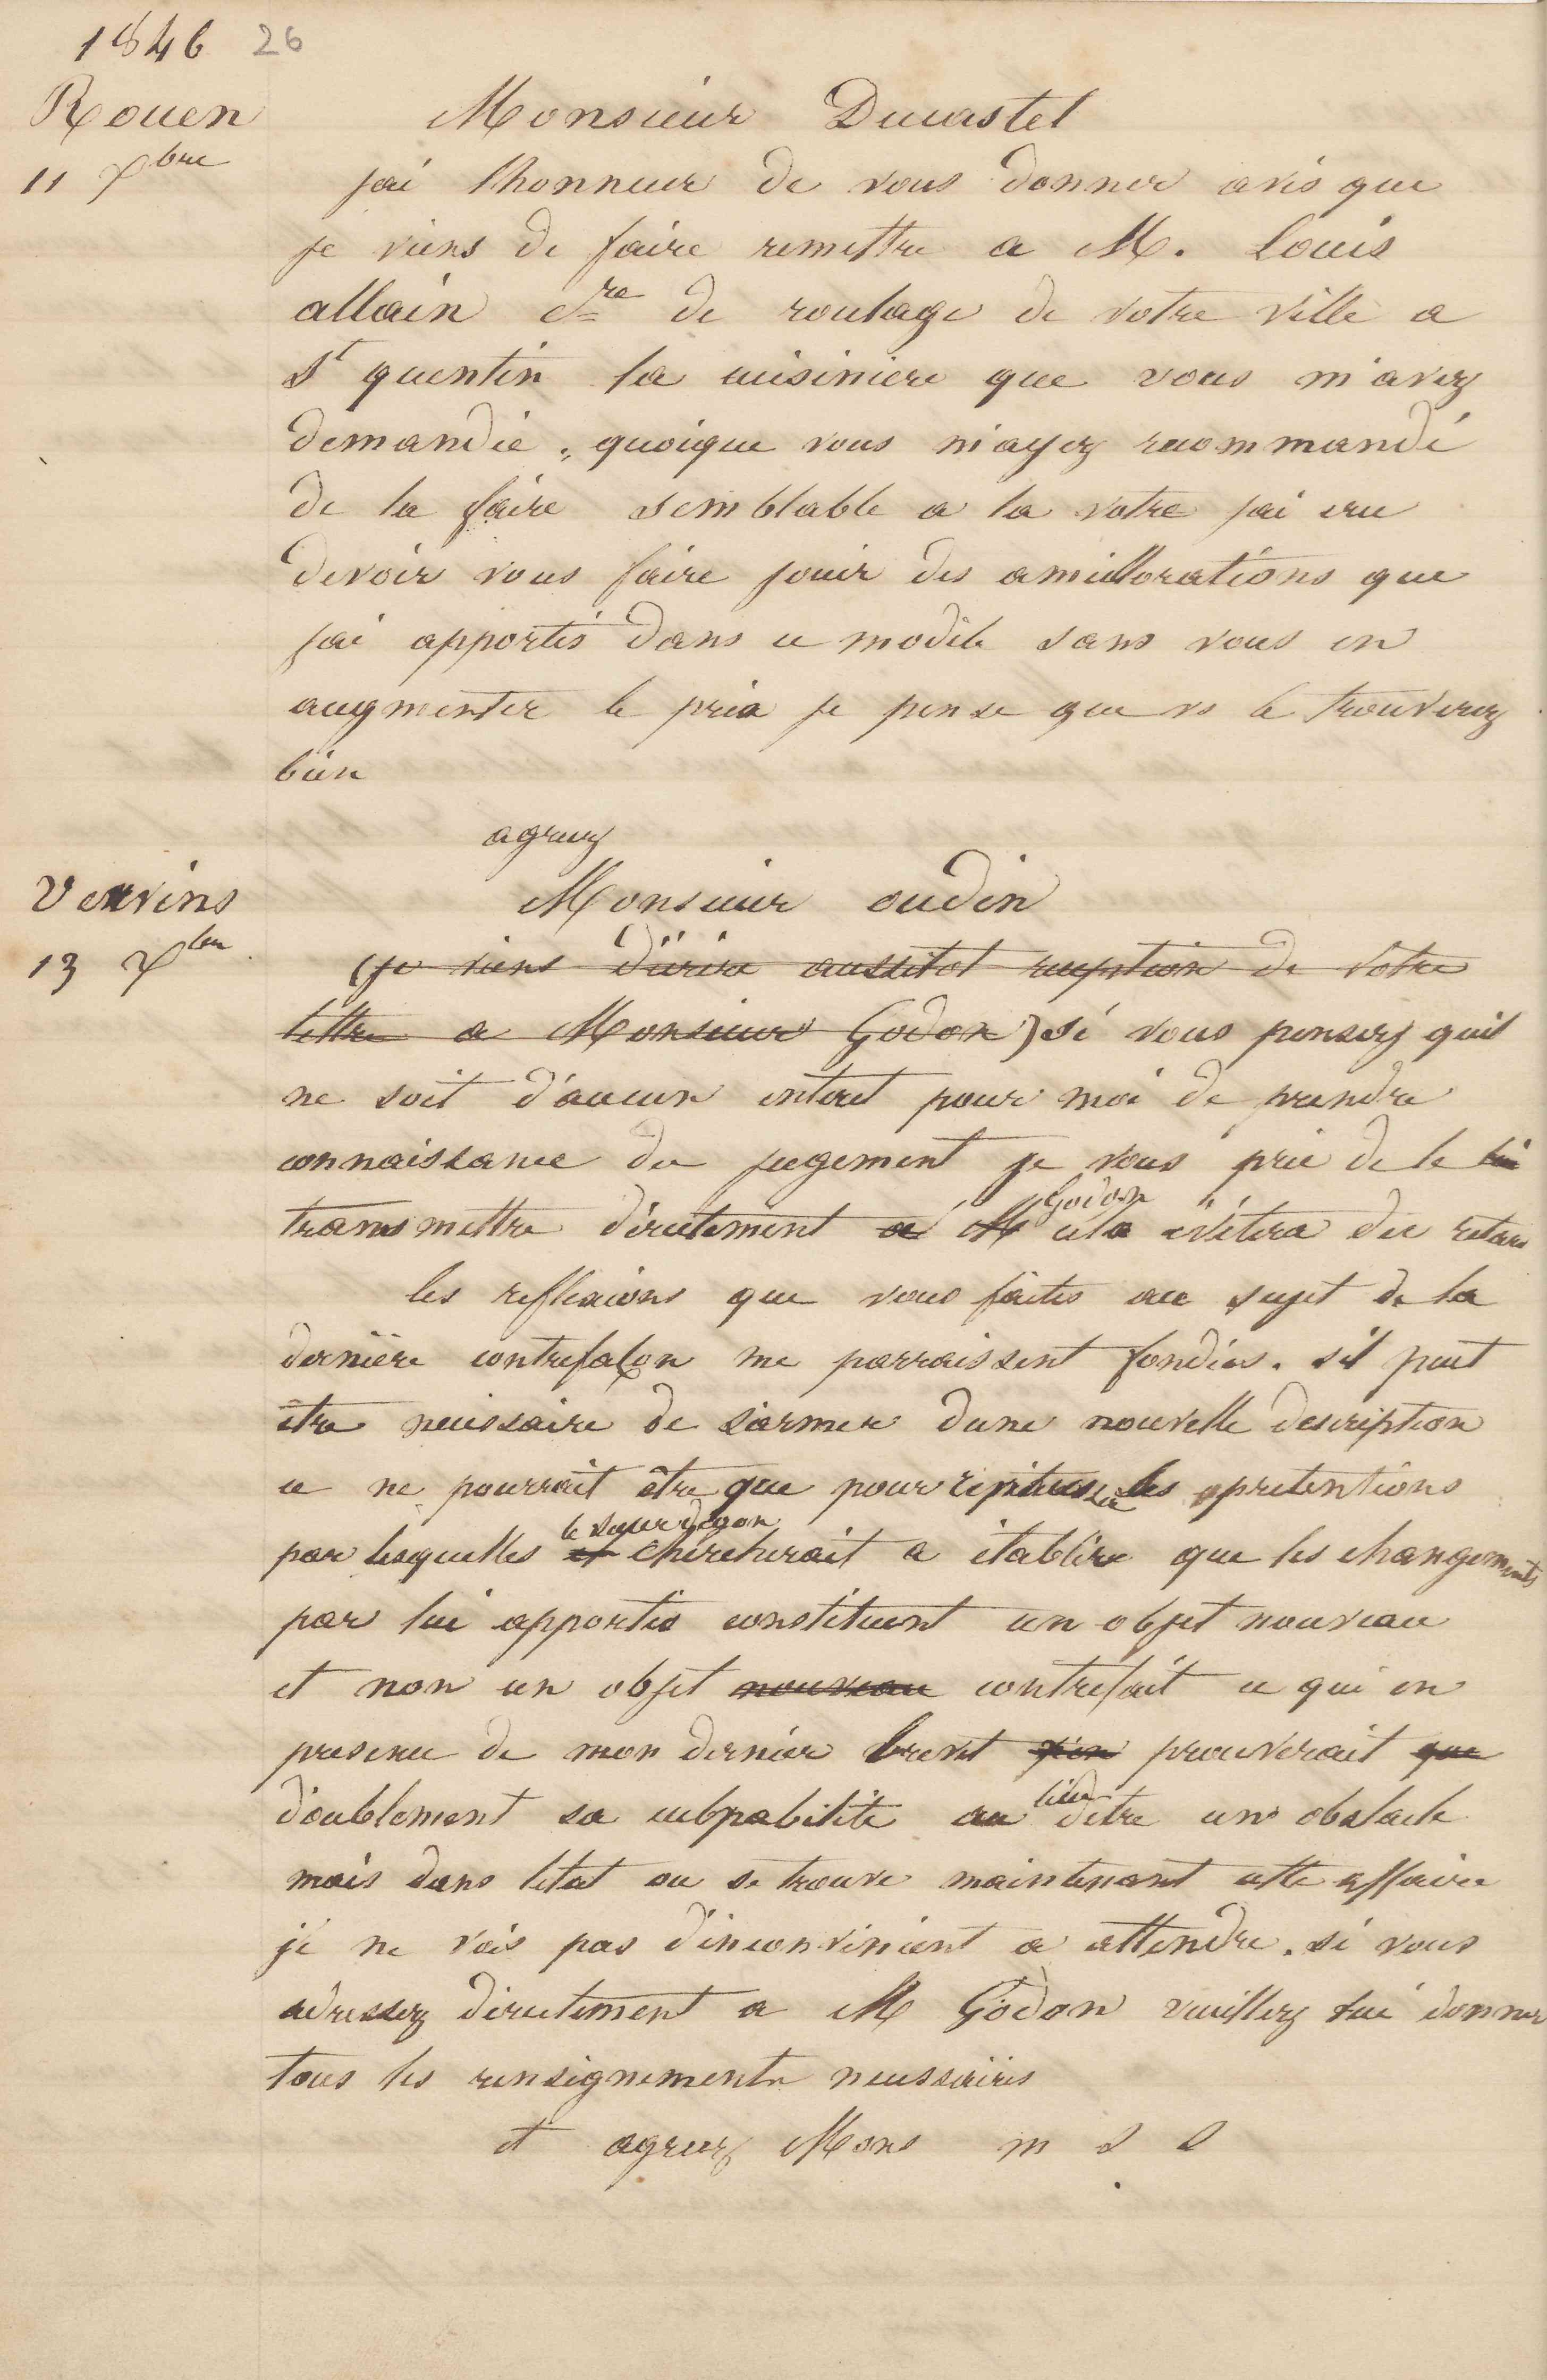 1846 26
Rouen
11 Xbre
Monsieur Ducastel
jai lhonneur de vous donner avis que
je viens de faire remettre a M. Louis
allain cre de roulage de votre ville a
St quentin la cuisiniere que vous m'avez
demandée, quoique vous m'ayez recommandé
de la faire semblable a la votre jai cru
devoir vous faire jouir des ameillorations que
jai apportés dans ce modèle sans vous en
augmenter le prix je pense que vs le trouverez
bien
agreez
Vervins
13 Xbre
Monsieur oudin
(je viens d'écrire aussitot reception de votre
lettre a Monsieur Godon) si vous pensez quil
ne soit d'aucun interet pour moi de prendre
connaissance du jugement je vous prie de le lui
transmettre directement a M Godon cela évitera du retard
les reflexions que vous faites au sujet de la
dernière contrefaçon me parraissent fondées. sil peut
être necessaire de s'armer dune nouvelle description
ce ne pourrait être que pour les pretentions
par lesquelles il le sieur chercherait a établire que les changements
par lui apportés constituent un objet nouveau
et non un objet nouveau contrefait ce qui en
presence de mon dernier brevet prouverait que
doublement sa culpabilité au lieu detre un obstacle
mais dans letat ou se trouve maintenant cette affaire
je ne vois pas d'inconvénient a attendre. si vous
adressez directement a M Godon veuillez lui donner
tous les renseignements necessaires
et agreez Mons m s s